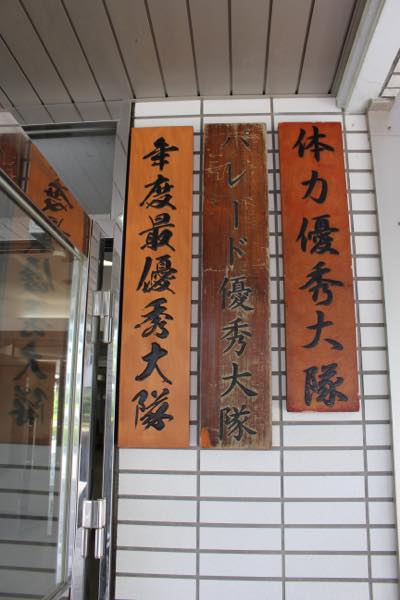 体力優秀大隊
パレード優秀大隊
年度最優秀大隊